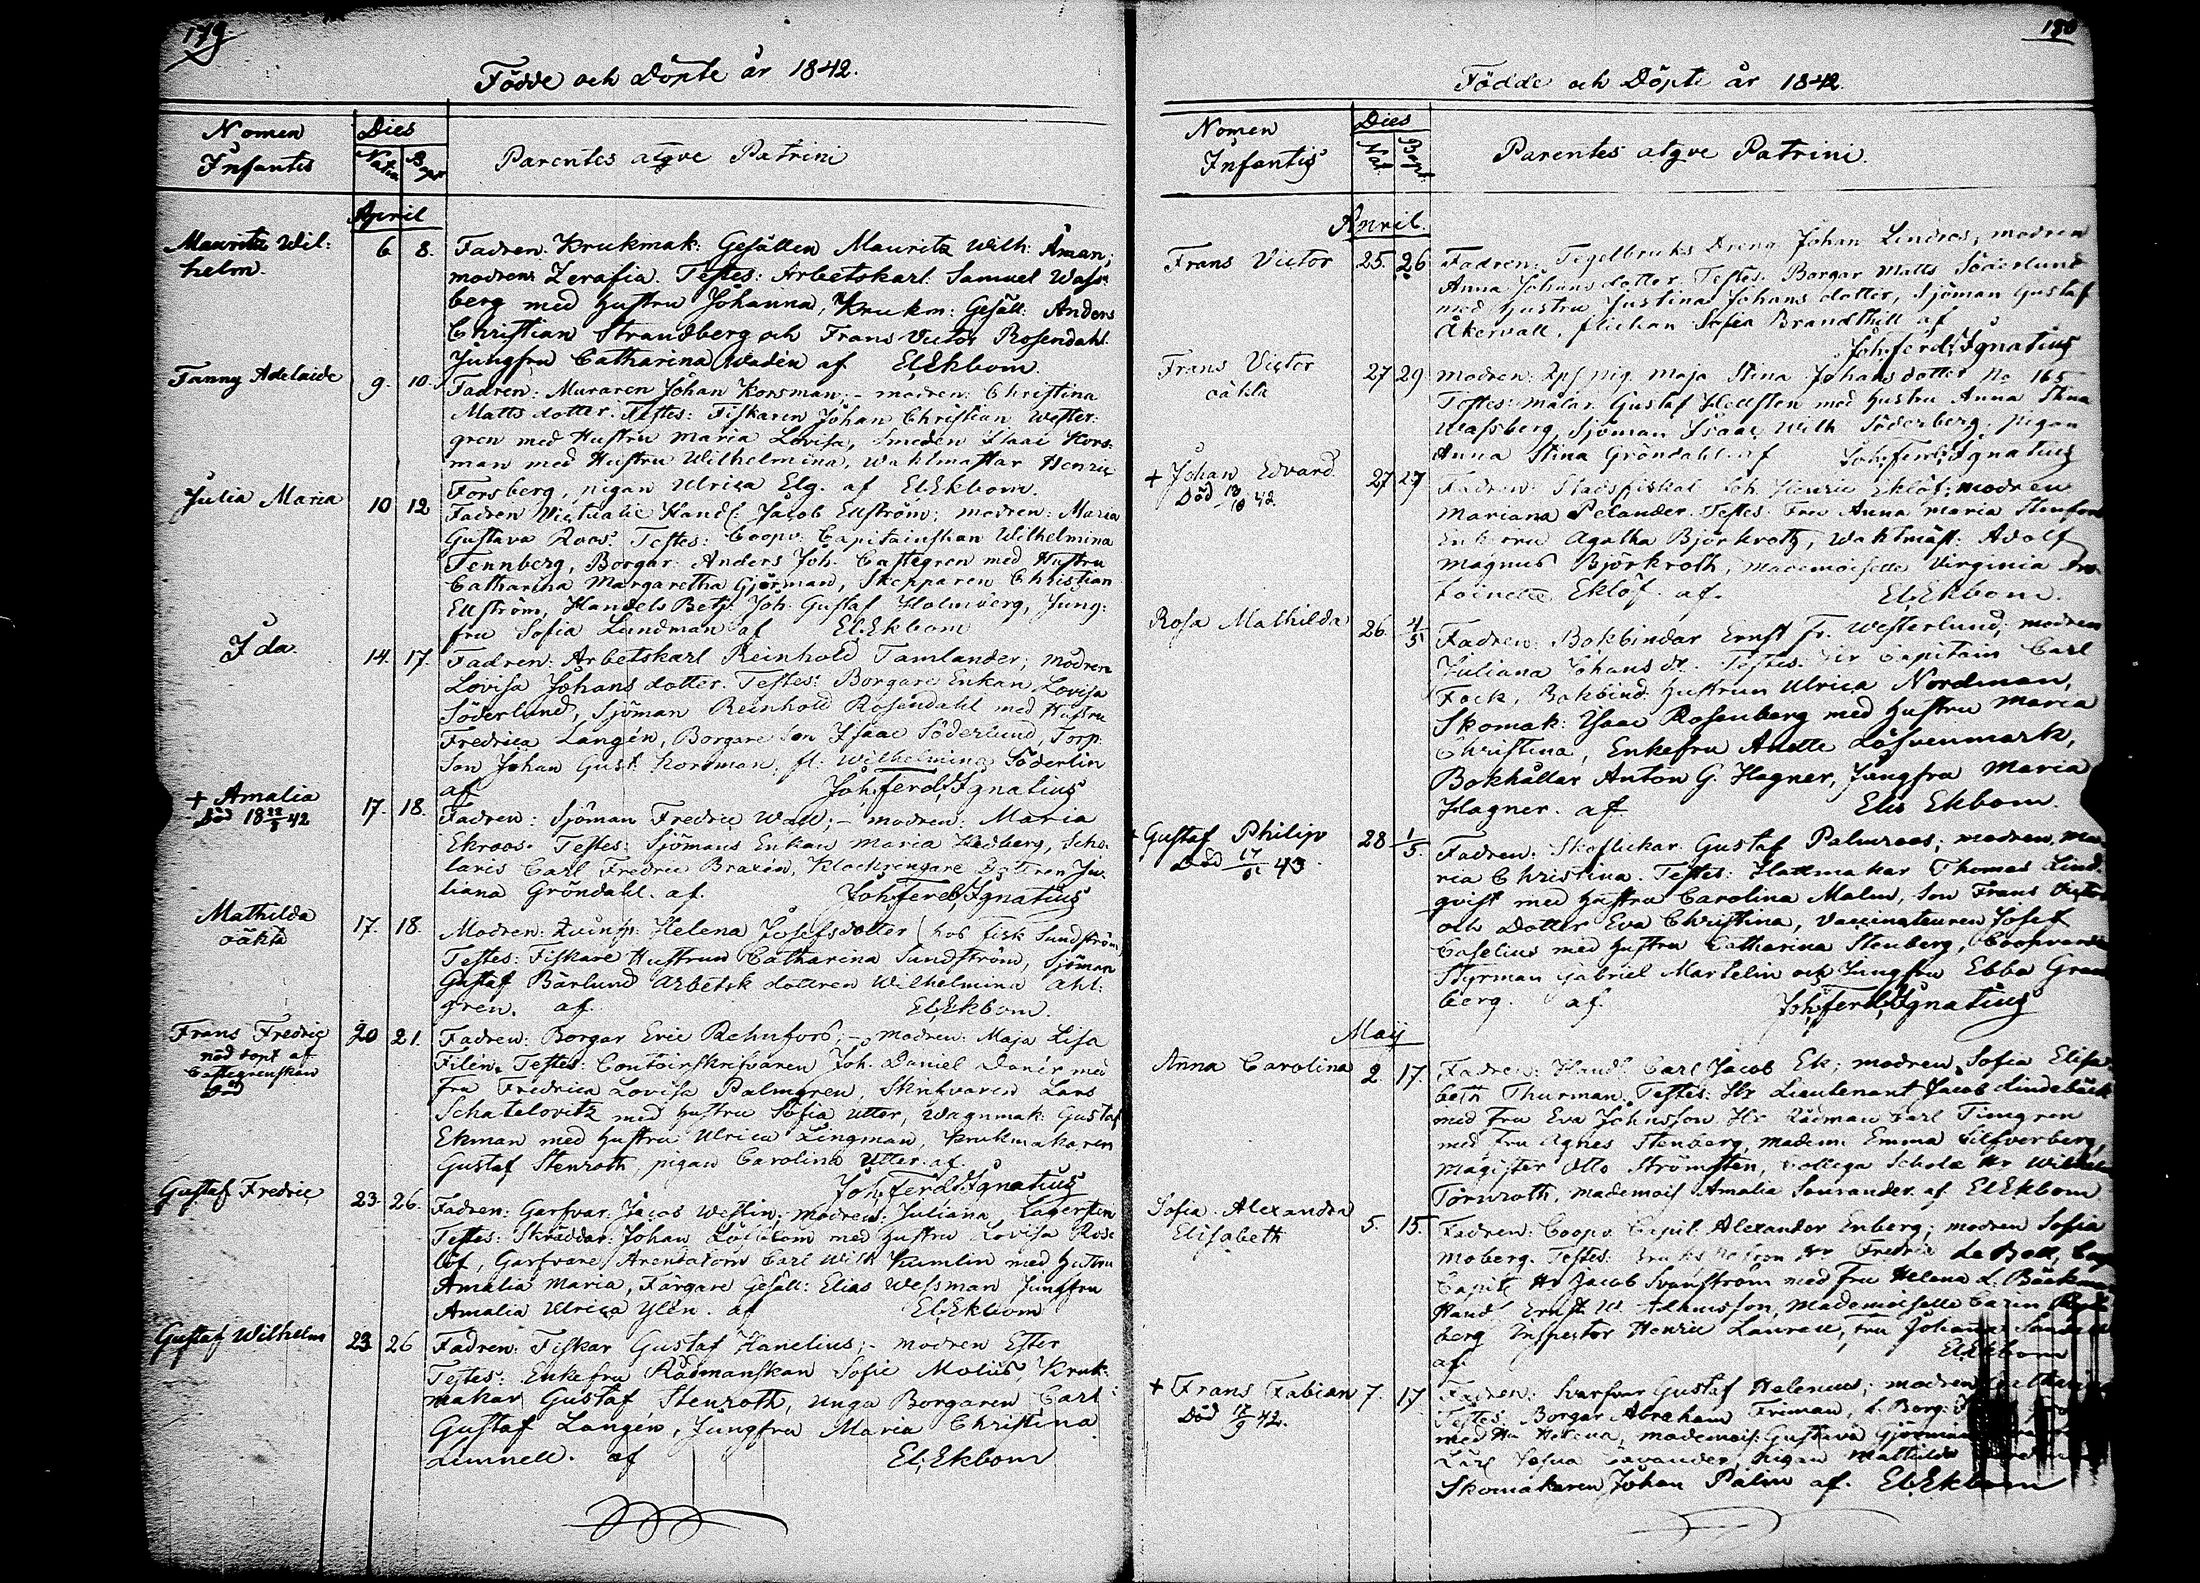 179
Födde och Döpte år 1842.
Nomen Infantis
Dies
Natus Bapt
Parentes atqve Patrini
April
Mauritz Wil: 6 8. Fadren: Krukmak: Gesällen Mauritz Wilh: Åman;
helm. modren Zerafia. Testes: Arbetskarl Samuel Wass
berg med hustru Johanna, Krukm: Gesäll: Anders
Christian Strandberg och Frans Victor Rosendahl
Jungfru Catharina Wadén af El:Ekbom.
Fanny Adelaide 9. 10. Fadren: Muraren Johan Korsman; - modren: Christina
Matts dotter. Testes: Fiskaren Johan Christian Wester:
gren med Hustru Maria Lovisa, Smeden Isaac Kors:
man med Hustru Wilhelmina, Waktmästar Henric
Forsberg, pigan Ulrica Elg. af El:Ekbom.
Julia Maria 10 12 Fadren Victualie Handl: Jacob Ellström; modren: Maria
Gustava Roos. Testes: Coopv. Capitainskan Wilhelmina
Tennberg, Borgar: Anders Joh. Castegren med Hustru
Catharina Margaretha Gjörman, Skepparen Christian
Ellström, Handels Betj: Joh. Gustaf Holmberg, Jung:
fru Sofia Lundman af El:Ekbom
Ida. 14. 17. Fadren: Arbetskarl Reinhold Tamlander; modren
Lovisa Johans dotter. Testes: Borgare Enkan Lovisa
Söderlund, Sjöman Reinhold Rosendahl med Hustru
Fredrica Langén, Borgare Son Isaac Söderlund, Torp:
Son Johan Gust: Korsman, fl: Wilhelmina Söderlin
af Joh:Ferd:Ignatius
+ Amalia 17. 18. Fadren: Sjöman Fredric Wall; - modren: Maria
Död 18 22/5 42 Ekroos. Testes: Sjömans Enkan Maria Hedberg, Scho:
laris Carl Fredric Braxén, Klockringare Dottren Ju:
liana Gröndahl. af. Joh:Ferd:Ignatius
Mathilda 17. 18. Modren: Helena Josefsdotter (hos Fisk Sundström)
oäkta Testes: Fiskare Hustrun Catharina Sundström, Sjöman
Gustaf Bärlund Arbetsk dottren Wilhelmina Ahl:
gren. af. El:Ekbom.
Frans Fredric 20 21. Fadren: Borgar Eric Rehnfors; - modren: Maja Lisa
nöd döpt af Filén. Testes: Contoirskrifvaren Joh. Daniel Danér med
Castegrenskan Fru Fredrica Lovisa Palmgren, Skrifvaren Lars
död Schatelovitz med hustru Sofia Utter, Wagnmak: Gustaf
Ekman med hustru Ulrica Lingman, Krukmakaren
Gustaf Stenroth, pigan Carolina Utter. af.
Joh:Ferd:Ignatius
Gustaf Fredric 23 26. Fadren: Garfvar: Jacob Westlin; modren: Juliana Lagersten
Testes: Skräddar: Johan med hustru Lovisa Rose
löf, Garfvare Arendatorn Carl Wilh Kumlin med hustru
Amalia Maria, Färgare Gesäll: Elias Wessman Jungfru
Amalia Ulrica Ylén. af El:Ekbom
Gustaf Wilhelm 23 26 Fadren: Fiskar Gustaf Hanelius; - modren Ester
Testes: Enkefru Rådmanskan Sofie Molüs, Kruk:
makar Gustaf Stenroth, unga Borgaren Carl
Gustaf Langén, Jungfru Maria Christina
Limnell. af El:Ekbom
180
Födde och Döpte år 1842.
Nomen Infantis
Dies
Nat: Bapt:
Parentes atqve Patrini.
April.
Frans Victor 25. 26 Fadren: Tegelbruks Dreng Johan Lindros; modren
Anna Johans dotter Testes: Borgar Matts Söderlund
med hustru Justina Johans dotter, Sjöman Gustaf
Åkervall, flickan Sofia Brandthill af
Joh:Ferd:Ignatius
Frans Victor 27 29 modren: pig. Maja Stina Johansdotter No 165
oäkta Testes: målar. Gustaf Hellsten med hustru Anna Stina
Wassberg, Sjöman Isaac Wilh Söderberg, pigan
Anna Stina Gröndahl. af Joh:Ferd:Ignatius
+ Johan Edvard 27 27 Fadren: Stadsfiskal Joh. Henric Eklöf; modren
Död 13/10 42 Mariana Pelander. Testes: Fru Anna Maria Stenfors
Enkefru Agatha Björkroth, Waktmäst: Adolf
Magnus Björkroth, Mademoiselle Virginia An
toinette Eklöf. af. El:Ekbom.
Rosa Mathilda 26. 4/5 Fadren: Bokbindar Ernst Fr. Westerlund; modren
Juliana Johans dr. Testes: Hr Capitain Carl
Fock, Bokbind. hustrun Ulrica Nordman,
Skomak: Isaac Rosenberg med hustru Maria
Christina, Enkefru Anette Löfvenmark,
Bokhållar Anton G. Hagner, Jungfru Maria
Hagner. af. Elis Ekbom.
+ Gustaf Philip 28 1/5. Fadren: Skoflickar. Gustaf Palmroos; modren Ma
Död 17/6 43. ria Christina. Testes: Hattmakar Thomas Lind
qvist med hustru Carolina Malm, Son Frans Victor
och Dotter Eva Christina, Vaccinateuren Josef
Caselius med hustru Catharina Stenberg, Coopvardi
Styrman Gabriel Martelin och Jungfru Ebba Gran
berg. af. Joh:Ferd:Ignatius
Maij
Anna Carolina 2 17. Fadren: Handl: Carl Jacob Ek; modren Sofia Elisa
beth Thurman. Testes: Hr Lieutenant Jacob Lindebäck
med Fru Eva Johnsson Hr Rådman Carl Timgren
med Fru Agnes Stenberg, Madem: Emma Silfverberg,
Magister Otto Strömsten, Collega Scholæ Hr Wilhelm
Törnroth, Mademois Amalia Sourander. af El:Ekbom
Sofia Alexandra 5. 15. Fadren: Coopv. Capit. Alexander Enberg; modren Sofia
Elisabeth Moberg. Testes: Hr Fredric Le Bell, Coop
Capit Hr Jacob Svanström med Fru Helena L. Bäckman
Handl Ernst W. Adamsson, Mademoiselle Carin
berg Inspector Henric Lauren, Fru Johanna
af. El:Ekbom
+ Frans Fabian 7. 17. Fadren: Svarfvar Gustaf Helenius; modren
Död 12/9 42. Testes: Borgar Abraham Friman,
med Hu Helena, mademois: Gustava Gjörman
pigan Mathilda
Skomakaren Johan Palm af. El:Ekbom